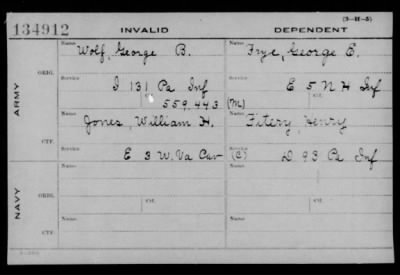 (3-H-5)
134912 INVALID DEPENDENT
Name Name
Wolf, George B. Frye, George E.
ORIG. Service Service
I 131 Pa Inf E 5 N H Inf
Ctf. Ctf.
559.443 (M)
ARMY
Name Name
Jones, William H. Fitery, Henry
CTF. Service Service
E 3 W. Va Cav (C) D 93 Pa Inf
Name Name
NAVY ORIG.
Ctf. Ctf.
Name Name
CTF.